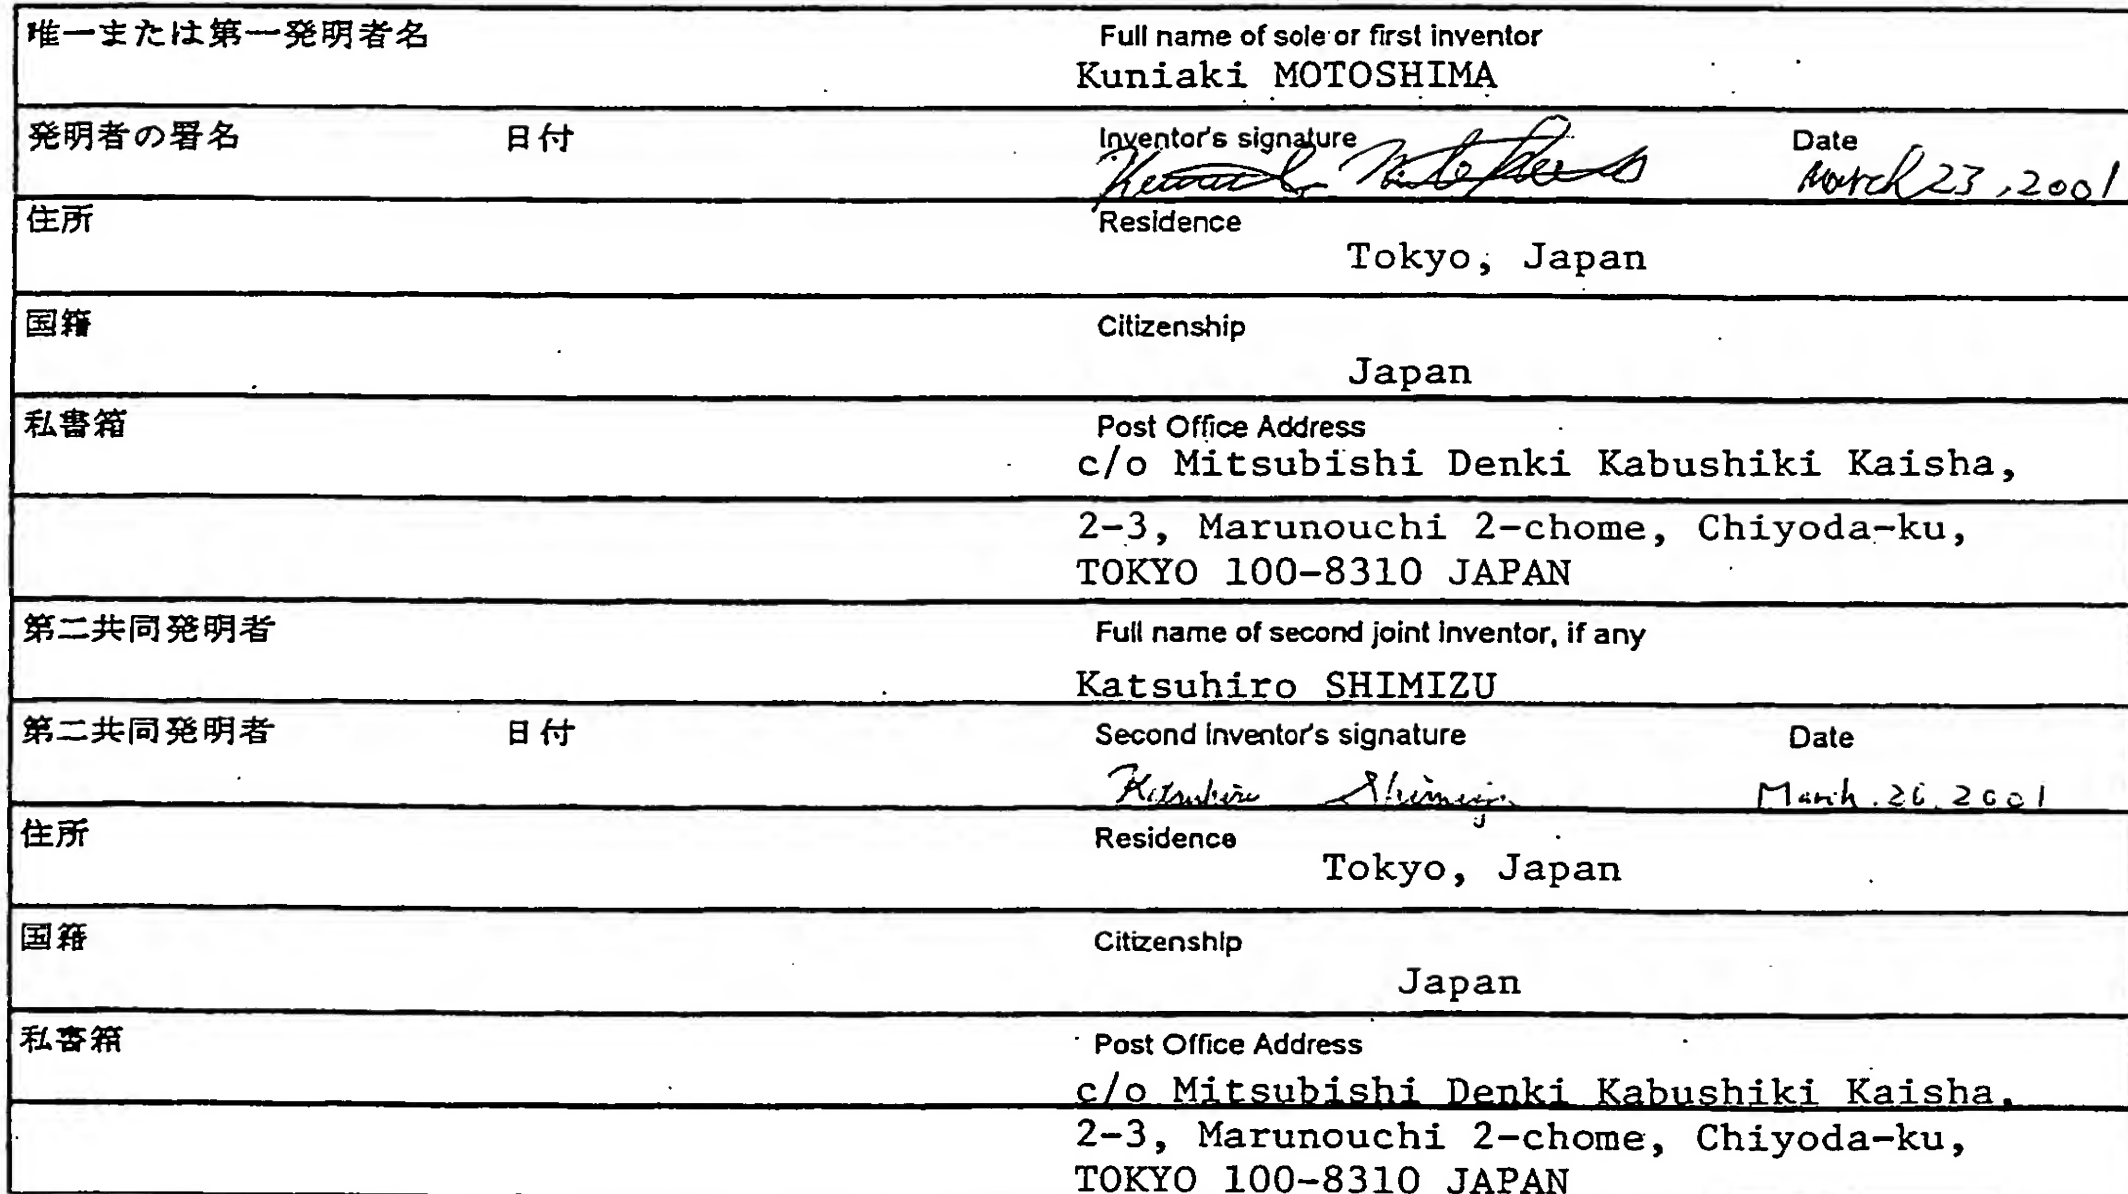 唯一または第一発明者名
Full name of sole or first inventor
Kuniaki MOTOSHIMA
発明者の署名 日付
Inventor's signature Date
March 23, 2001
住所
Residence
Tokyo, Japan
国籍
Citizenship
Japan
私書箱
Post Office Address
c/o Mitsubishi Denki Kabushiki Kaisha,
2-3, Marunouchi 2-chome, Chiyoda-ku,
TOKYO 100-8310 JAPAN
第二共同発明者
Full name of second joint inventor, if any
Katsuhiro SHIMIZU
第二共同発明者 日付
Second inventor's signature Date
Katsuhiro Shimizu March. 26. 2001
住所
Residence
Tokyo, Japan
国籍
Citizenship
Japan
私書箱
Post Office Address
c/o Mitsubishi Denki Kabushiki Kaisha,
2-3, Marunouchi 2-chome, Chiyoda-ku,
TOKYO 100-8310 JAPAN